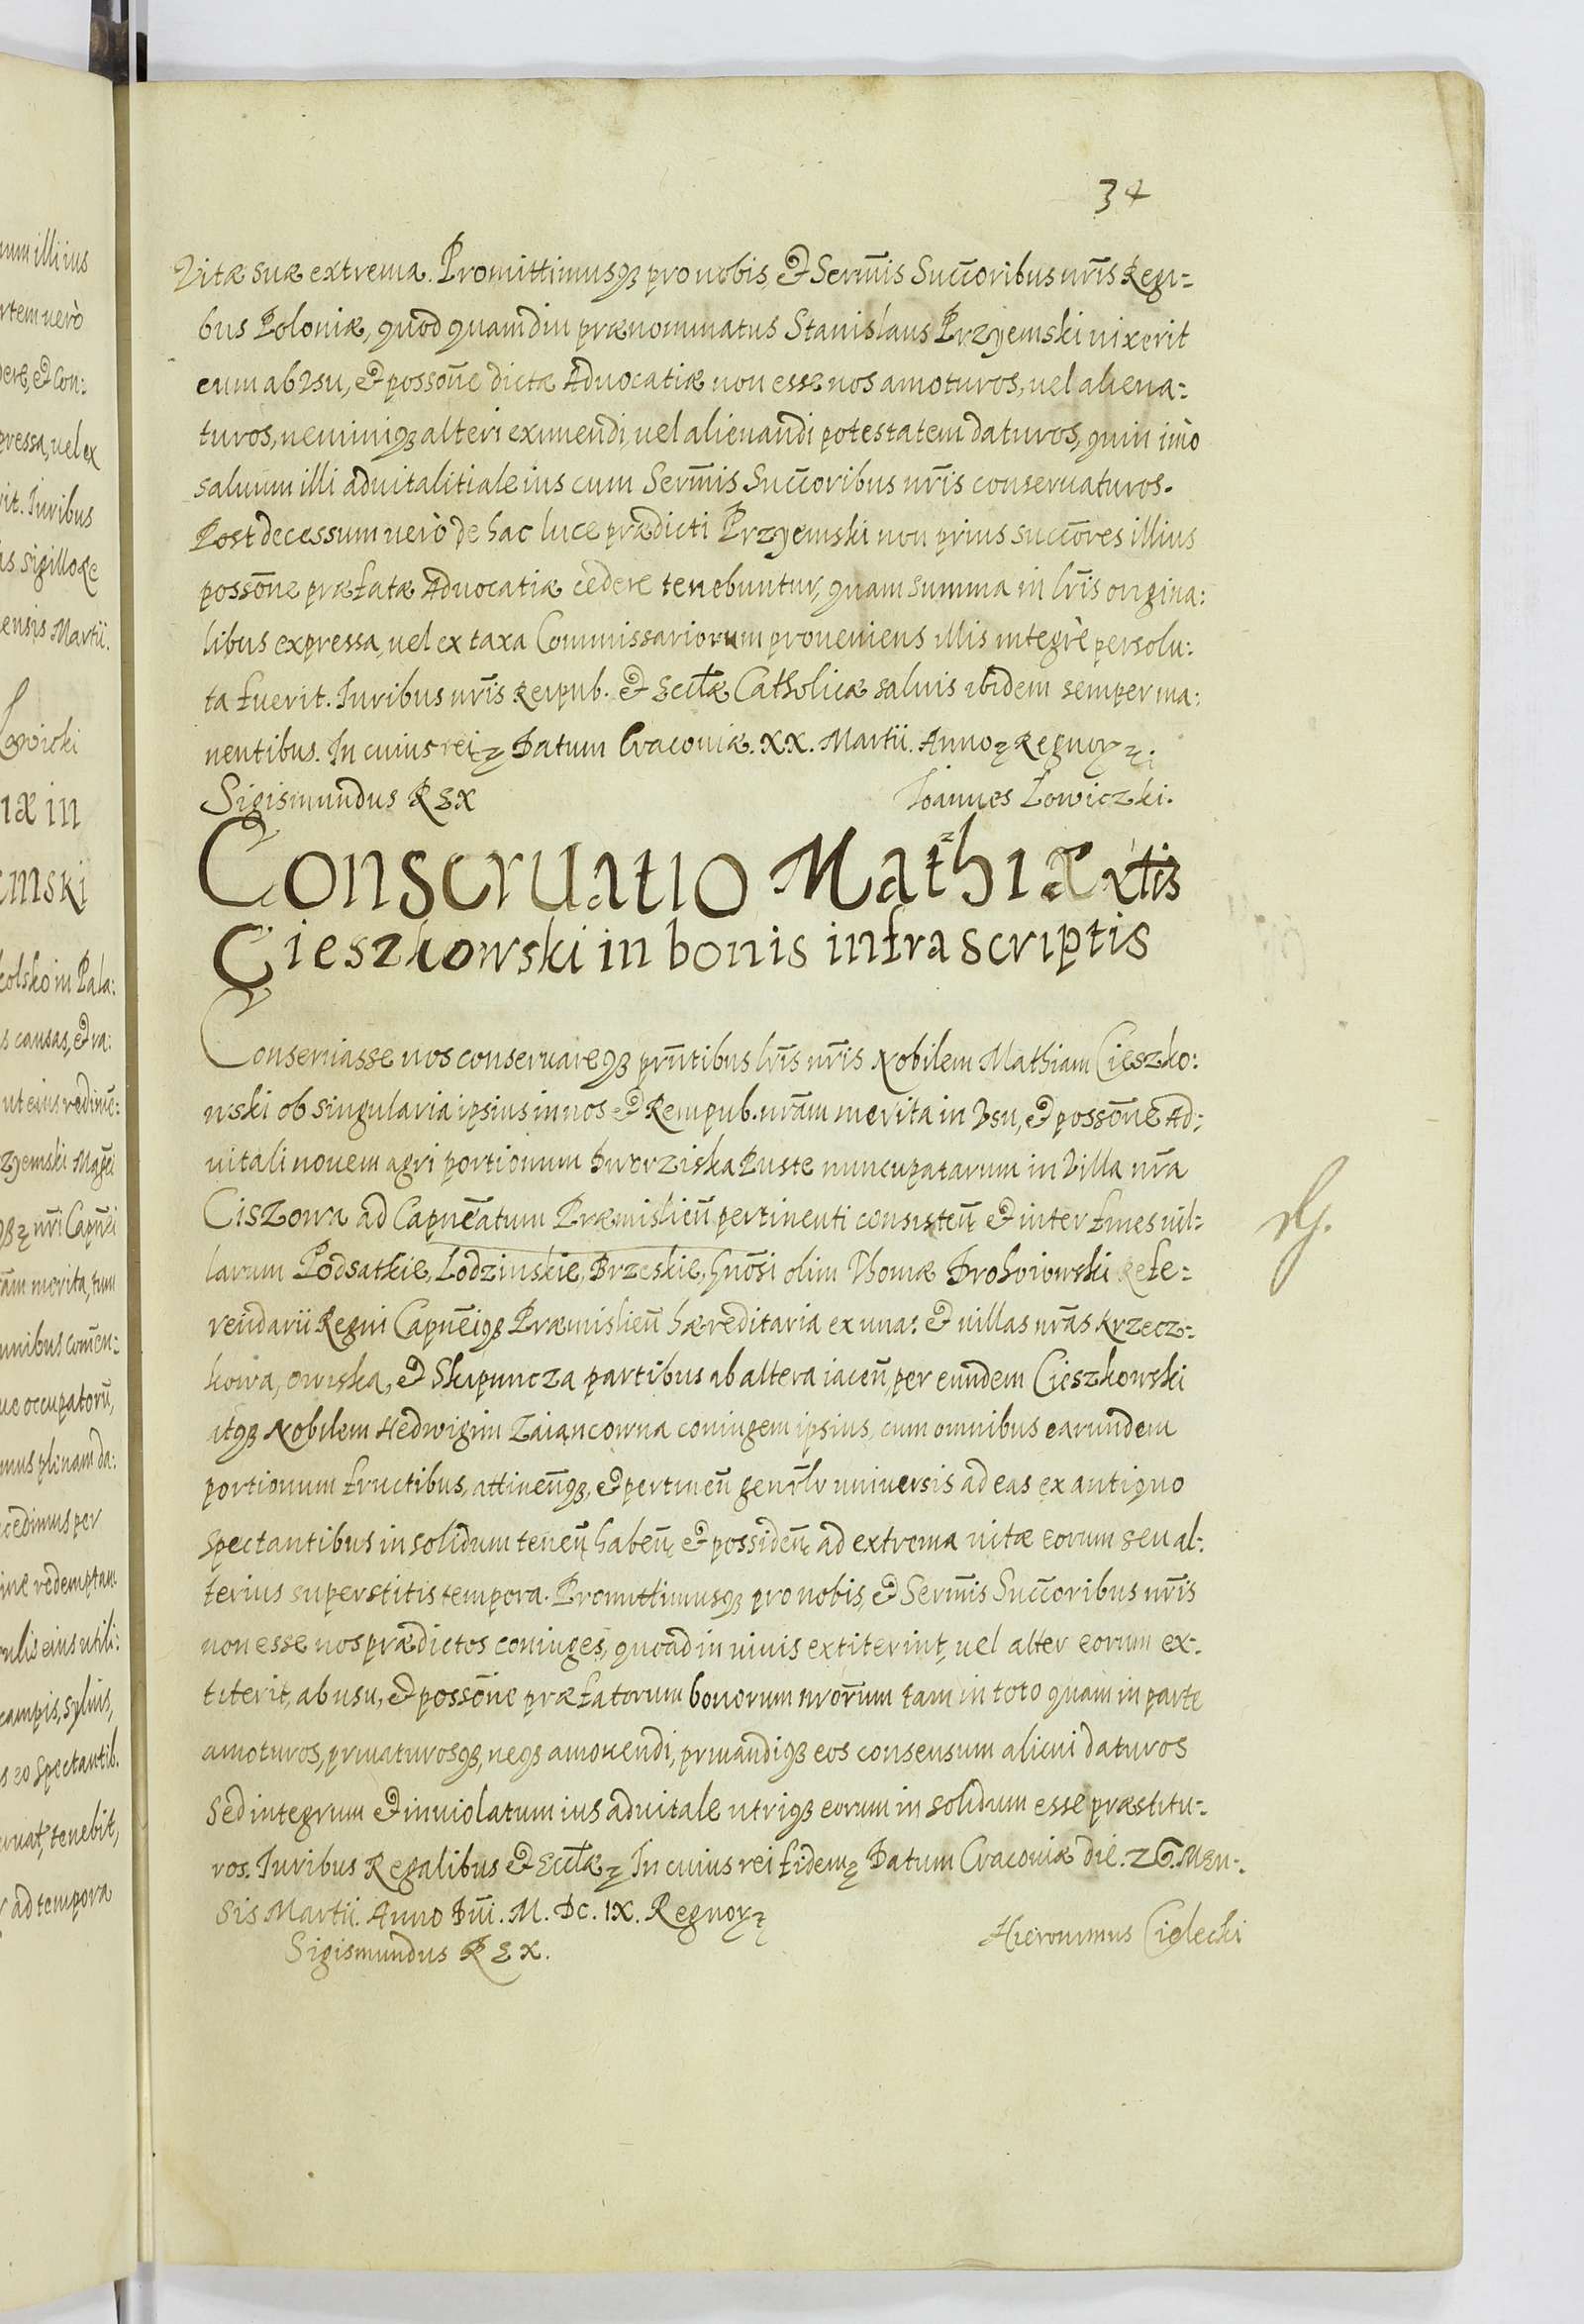 34
Vitæ suæ extrema. Promittimusq3 pro nobis, et Serm̃is Succ̃oribus nr̃is Regi-
bus Poloniæ, quod quamdiu prænominatus Stanislaus Przyemski vixerit
eum ab Vsu, et possoñe dictæ Advocatiæ non esse nos amoturos, uel aliena:
turos, neminiq3 alteri eximendi, uel alienandi potestatem daturos, quin imò
saluum illi aduitalitiale ius cum Serm̃is Succ̃oribus nr̃is conseruaturos.
Post decessum uerò de hac luce prædicti Przyemski non prius succõres illius
possõne præfatæ Advocatiæ cedere tenebuntur, quam summa in lr̃is origina:
libus expressa, uel ex taxa Commissariorum proueniens illis integrè persolu:
ta fuerit. Iuribus nr̃is Reipub. et Eccl̃æ Catholicæ saluis ibidem semper ma:
nentibus. In cuius rei ꝛ Datum Cracouiæ. XX. Martii. Anno ꝛ Regnor ꝛ.
Sigismundus REX
Ioannes Łowiczki.
Conseruatio Mathiæ
Cieszkowski in bonis infrascriptis
Conseruasse nos conseruareq3 prñtibus lr̃is nr̃is Nobilem Mathiam Cieszko:
wski ob singularia ipsius in nos et Rempub. nr̃am merita in Vsu, et possõne Ad:
uitali nouem agri portionum Dworziska Puste nuncupatarum in Villa nr̃a
Ciszowa ad Capnẽatum Præmislieñ pertinenti consisteñ et inter fines uil:
larum Podsatkie, Lodzinskie, Brzeskie, Gnõsi olim Thomæ Drohoiowski Refe:
rendarii Regni Capnẽiq3 Præmislieñ hæreditaria ex una: et uillas nr̃as Krzecz:
kowa, Owiska, et Skupuncza partibus ab altera iaceñ, per eundem Cieszkowski
atq3 Nobilem Hedwigim Zaiancowna coniugem ipsius, cum omnibus earundem
portionum fructibus, attineñq3, et pertineñ genr̃lr uniuersis ad eas ex antiquo
spectantibus in solidum teneñ, habeñ, et possideñ, ad extrema uitæ eorum seu al:
terius superstitis tempora. Promittimusq3 pro nobis, et Serm̃is Succ̃oribus nr̃is
non esse nos prædictos coniuges, quoad in uiuis extiterint, uel alter eorum ex-
titerit, ab usu, et possõne præfatorum bonorum nrõrum tam in toto quam in parte
amoturos, priuaturosq3, neq3 amouendi, priuandiq3 eos consensum alicui daturos
Sed integrum et inuiolatum ius aduitale utriq3 eorum in solidum esse præstitu-
ros. Iuribus Regalibus et Eccl̃æ ꝛ In cuius rei fidem ꝛ Datum Cracouiæ die. 26. Men-
sis Martii. Anno Dñi. M. DC. IX. Regnor ꝛ
Sigismundus REX.
Hieronimus Cielecki